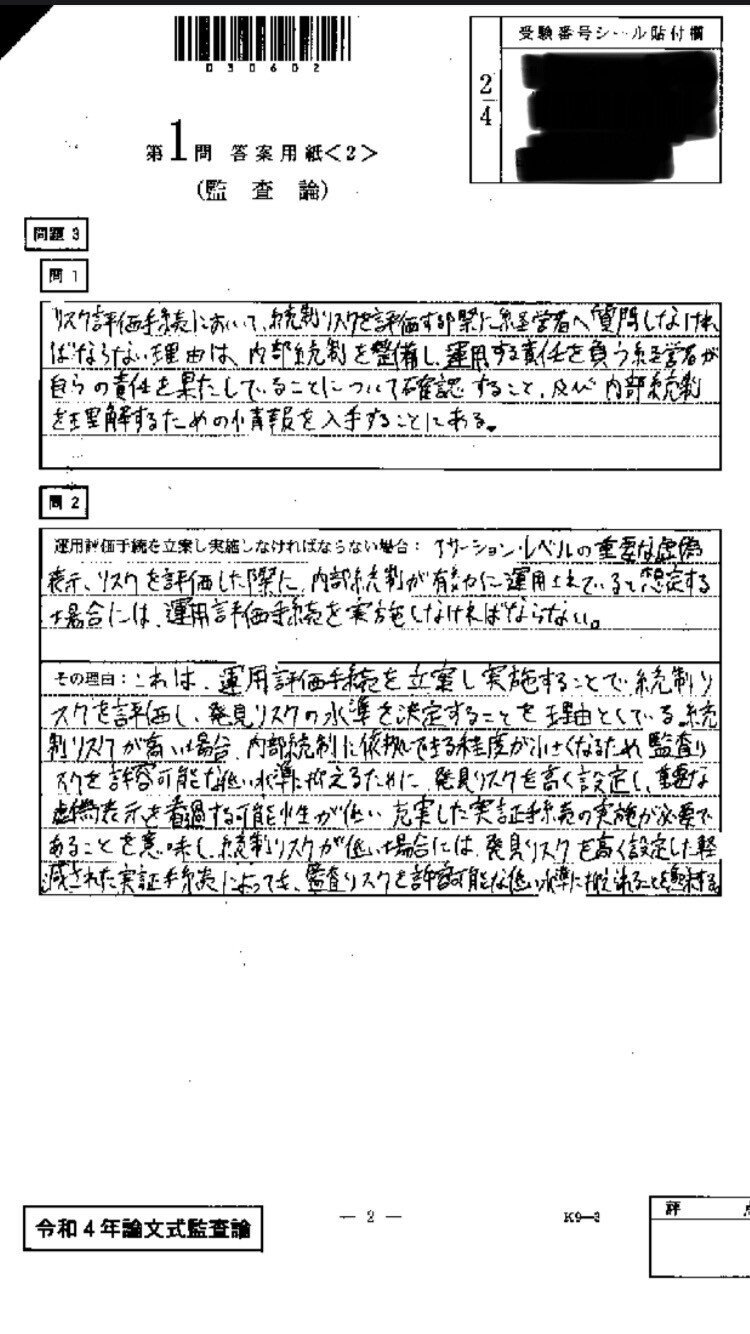 030602
受験番号シール貼付欄
2/4
第1問 答案用紙<2>
(監査論)
問題3
問1
リスク評価手続において、統制リスクを評価する際に経営者へ質問しなけれ
ばならない理由は、内部統制を整備し、運用する責任を負う経営者が
自らの責任を果たしていることについて確認すること、及び内部統制
を理解するための情報を入手することにある。
問2
運用評価手続を立案し実施しなければならない場合：アサーション・レベルの重要な虚偽
表示リスクを評価した際に、内部統制が有効に運用されていると想定する
場合には、運用評価手続を実施しなければならない。
その理由：これは、運用評価手続を立案し実施することで、統制リ
スクを評価し、発見リスクの水準を決定することを理由としている。統
制リスクが高い場合、内部統制に依拠できる程度が小さくなるため、監査リ
スクを許容可能な低い水準に抑えるために、発見リスクを高く設定し、重要な
虚偽表示を看過する可能性が低い、充実した実証手続の実施が必要で
あることを意味し、統制リスクが低い場合には、発見リスクを高く設定した軽
減された実証手続によっても、監査リスクを許容可能な低い水準に抑えられることを意味する。
令和4年論文式監査論
― 2 ―
K9―3
評 点